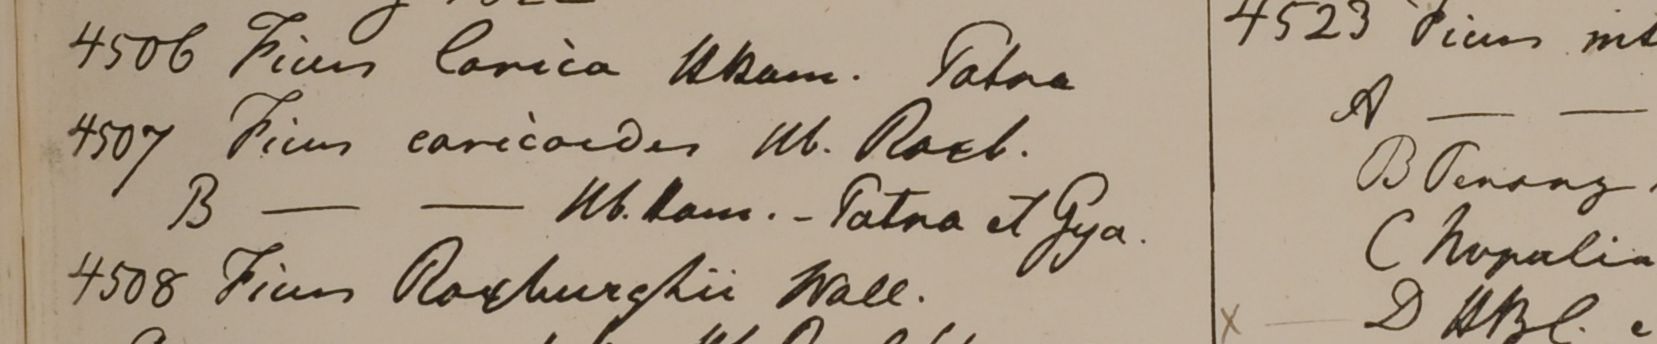 4506 Ficus Carica HHam. Patna
4507 Ficus caricoides Hb. Roxb.
B — — Hb. Ham. - Patna et Gya.
4508 Ficus Roxburghii Wall.
4523 Ficus
A — —
B Penang
C Napalia
D HBC.
x